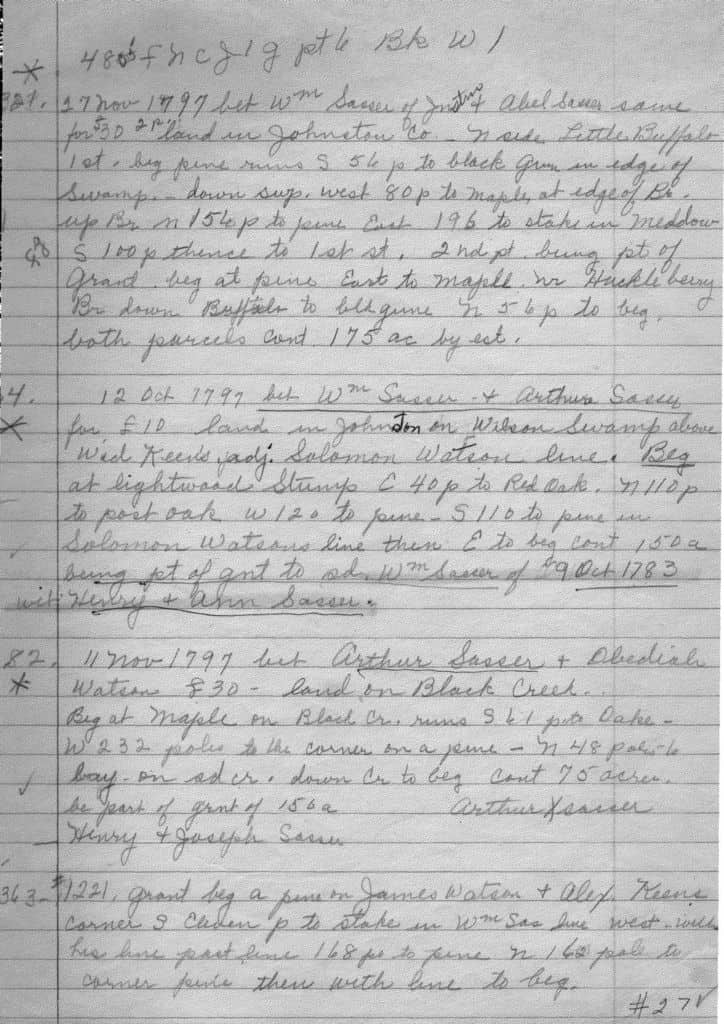 * 480 f n c J 1 g pt 6 Bk W 1
321. 27 Nov 1797 bet Wm Sasser of & Abel Sasser same
for $30 land in Johnston Co - N side Little Buffalo
1st. beg pine runs S 56 p to black Gum in edge of
Swamp. - down swp. west 80 p to maple at edge of Br.
up Br N 156 p to pine East 196 to stake in Meddow
S 100 p thence to 1st st. 2nd pt. being pt of
Grant beg at pine East to maple nr Huckleberry
Br down Buffalo to blk gum N 56 p to beg.
both parcels cont. 175 ac by est.
4. 12 Oct 1797 bet Wm Sasser & Arthur Sasser
* for £10 land in Johnston on Wilson Swamp above
Wid Keen's adj. Solomon Watson line. Beg
at lightwood Stump E 40 p to Red Oak. N 110 p
to post oak W 120 to pine - S 110 to pine in
Solomon Watsons line then E to beg cont 150 a
being pt of gnt to sd. Wm Sasser of 9 Oct 1783
wit: Henry & Ann Sasser.
82. 11 Nov 1797 bet Arthur Sasser & Obediah
* Watson £30 - land on Black Creek.
Beg at Maple on Black Cr. runs S 61 p to Oake -
W 232 poles to the corner on a pine - N 48 poles to
bay - on sd cr. down Cr to beg cont 75 acres.
be part of grnt of 150 a Arthur X Sasser
Henry & Joseph Sasser
363 - #1221, grant beg a pine on James Watson & Alex. Keens
corner S Eleven p to stake in Wm Sas line west with
his line past line 168 po to pine N 162 pole to
corner pine then with line to beg.
#27 ✓